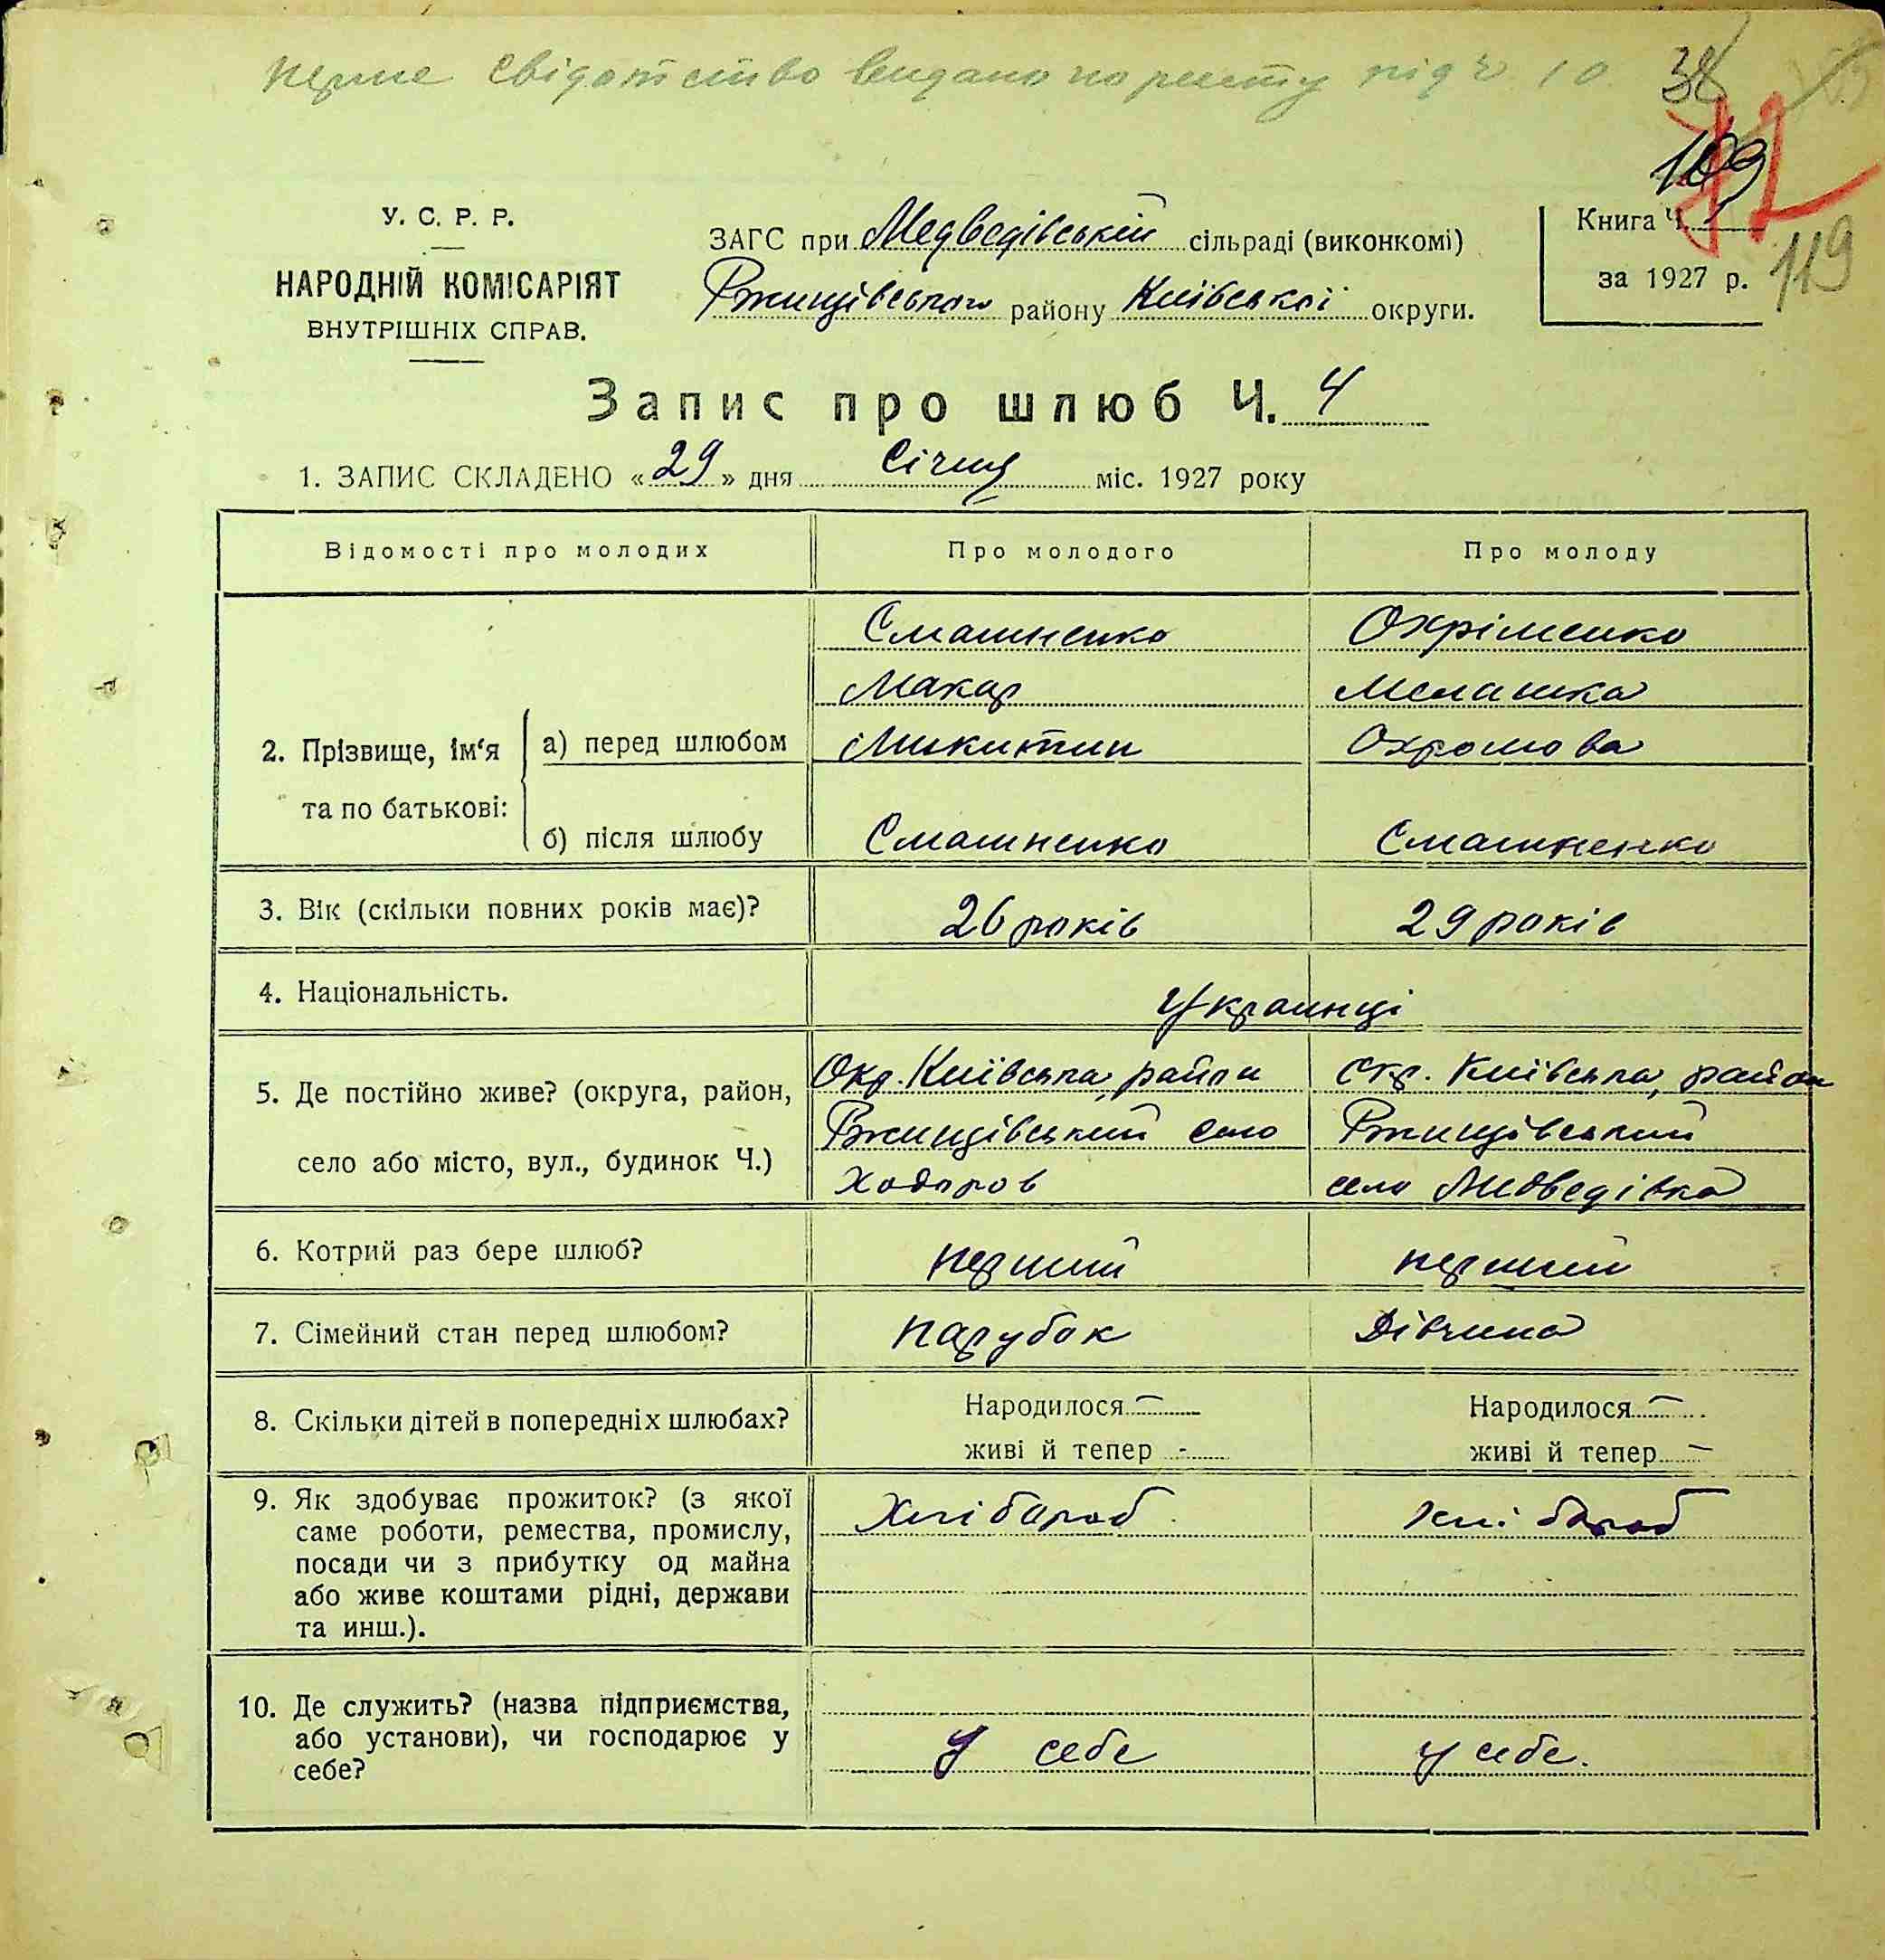 перше свідотство видано по реєсту під ч 10
38
109
72
119
У. С. Р. Р.
НАРОДНІЙ КОМІСАРІЯТ
ВНУТРІШНІХ СПРАВ.
ЗАГС при Медведівській сільраді (виконкомі)
Ржищівського району Київської округи.
Книга Ч. 1
за 1927 р.
Запис про шлюб Ч. 4
1. ЗАПИС СКЛАДЕНО «29» дня Січня міс. 1927 року
Відомості про молодих Про молодого Про молоду
2. Прізвище, ім'я та по батькові:
а) перед шлюбом
Смашненко Охріменко
Макар Мелашка
Микитин Охромова
б) після шлюбу Смашненко Смашненко
3. Вік (скільки повних років має)? 26 років 29 років
4. Національність. Українці
5. Де постійно живе? (округа, район,
село або місто, вул., будинок Ч.)
Окр. Київська, район Окр. Київська, район
Ржищівський село Ржищівський
Ходоров село Медведівка
6. Котрий раз бере шлюб? перший перший
7. Сімейний стан перед шлюбом? парубок Дівчина
8. Скільки дітей в попередніх шлюбах? Народилося — Народилося —
живі й тепер - живі й тепер —
9. Як здобуває прожиток? (з якої Хлібороб Хлібороб
саме роботи, ремества, промислу,
посади чи з прибутку од майна
або живе коштами рідні, держави
та инш.).
10. Де служить? (назва підприємства,
або установи), чи господарює у
себе? У себе у себе.